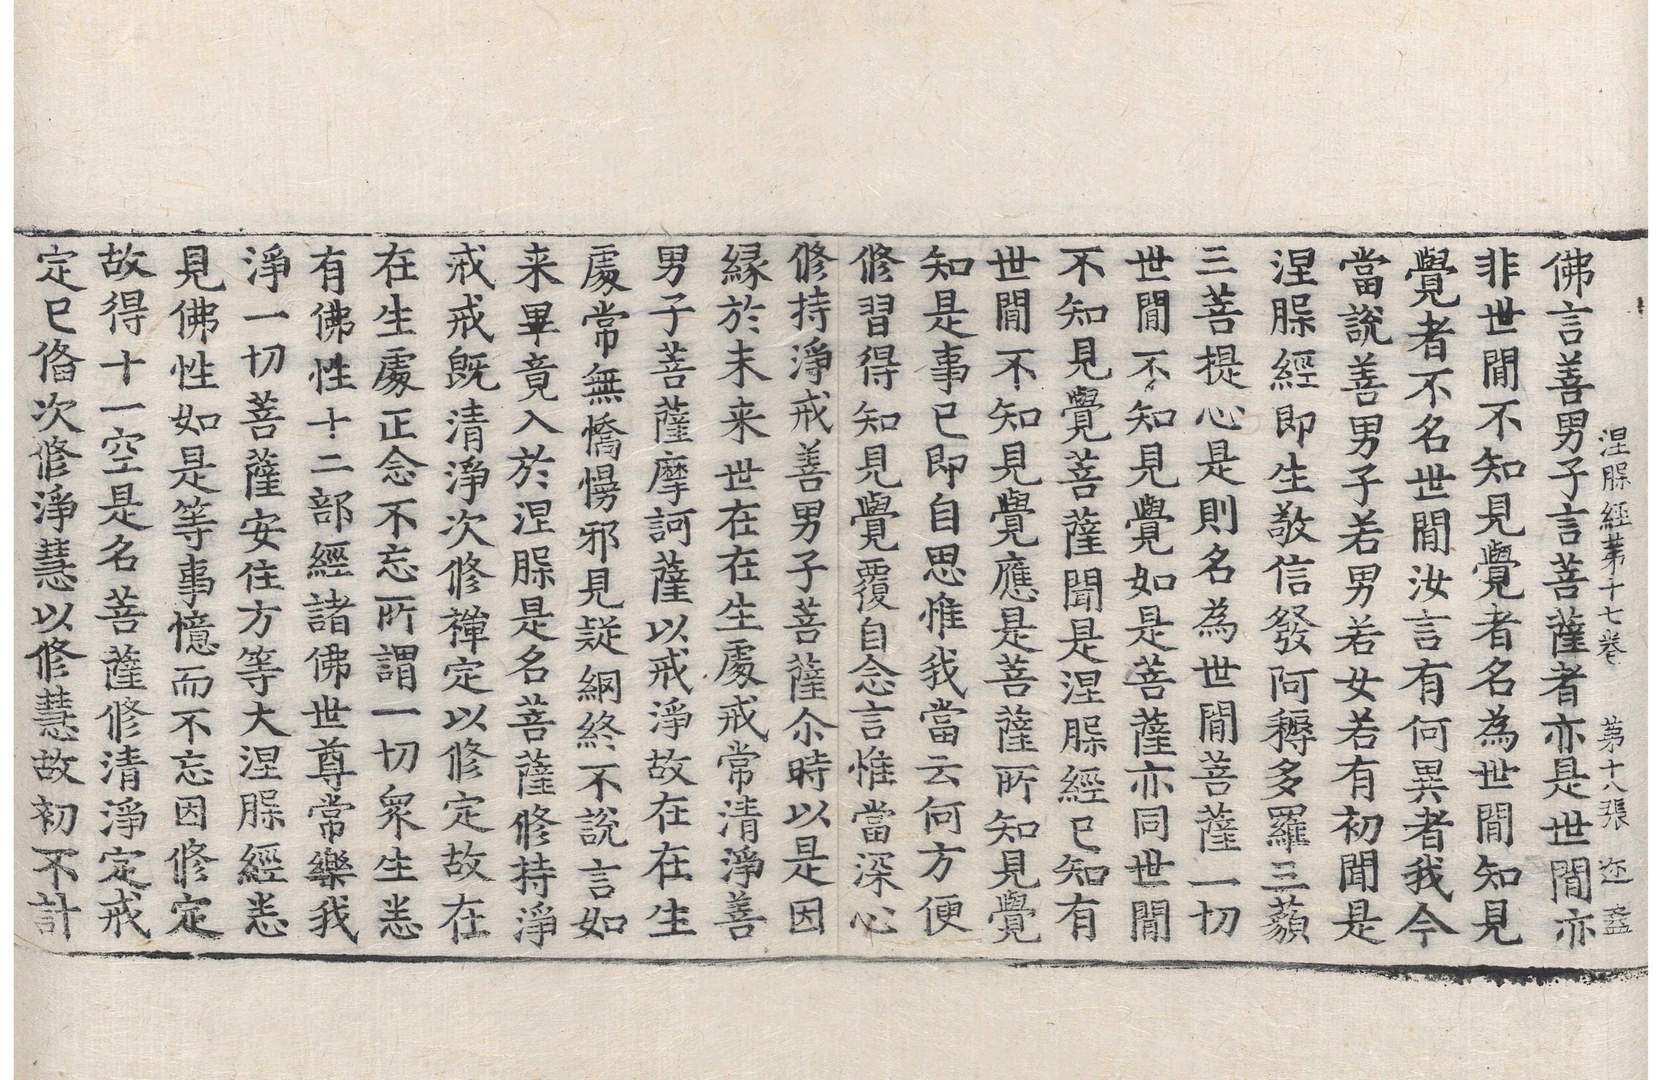 涅槃經第十七卷　第十八張　迩　盇
佛言善男子言菩薩者亦是世間亦
非世間不知見覺者名為世間知見
覺者不名世間汝言有何異者我今
當說善男子若男若女若有初聞是
涅槃經即生敬信發阿耨多羅三藐
三菩提心是則名為世間菩薩一切
世間不知見覺如是菩薩亦同世間
不知見覺菩薩聞是涅槃經已知有
世間不知見覺應是菩薩所知見覺
知是事已即自思惟我當云何方便
修習得知見覺覆自念言惟當深心
修持淨戒善男子菩薩尒時以是因
縁於未来世在在生處戒常清淨善
男子菩薩摩訶薩以戒淨故在在生
處常無憍慢邪見疑網終不說言如
来畢竟入於涅槃是名菩薩修持淨
戒戒既清淨次修禪定以修定故在
在生處正念不忘所謂一切衆生悉
有佛性十二部經諸佛世尊常樂我
淨一切菩薩安住方等大涅槃經悉
見佛性如是等事憶而不忘因修定
故得十一空是名菩薩修清淨定戒
定已俻次修淨慧以修慧故初不計